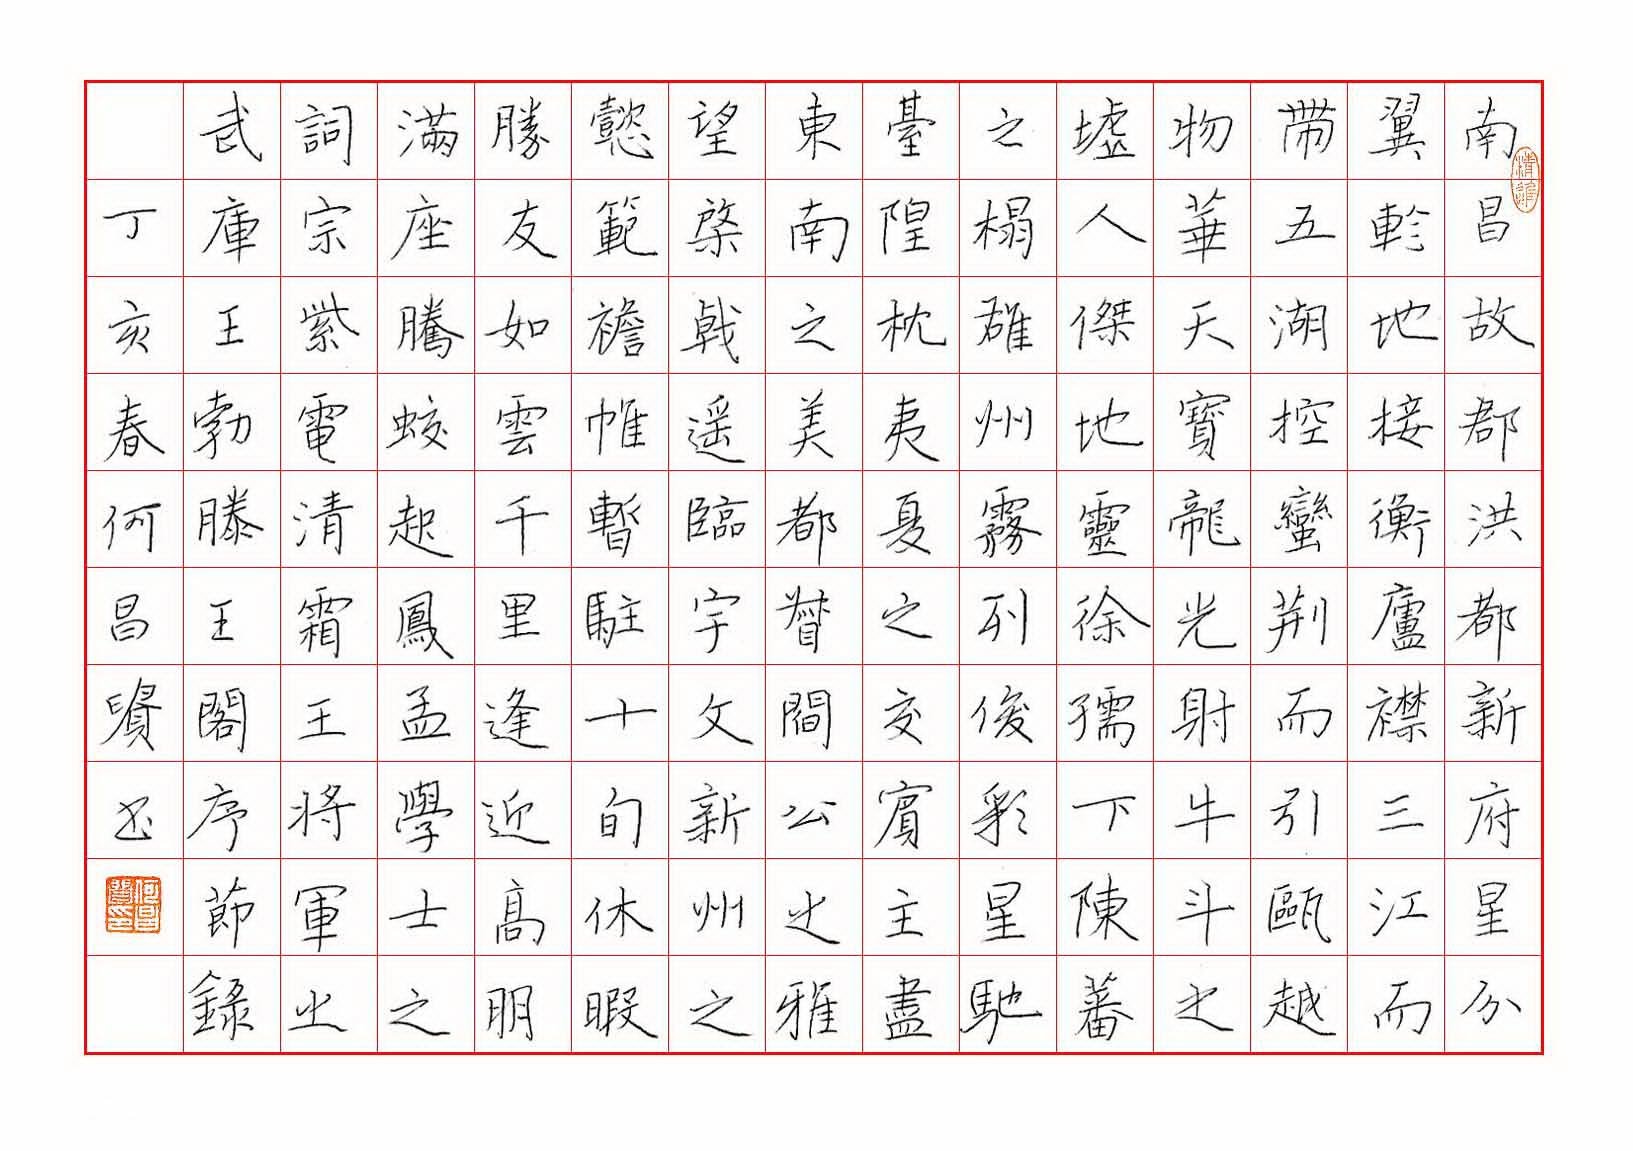 南昌故郡洪都新府星分
翼軫地接衡廬襟三江而
帶五湖控蠻荊而引甌越
物華天寶龍光射牛斗之
墟人傑地靈徐孺下陳蕃
之榻雄州霧列俊彩星馳
臺隍枕夷夏之交賓主盡
東南之美都督閻公之雅
望棨戟遥臨宇文新州之
懿範襜帷暫駐十旬休暇
勝友如雲千里逢近高朋
滿座騰蛟起鳳孟學士之
詞宗紫電清霜王將軍之
武庫王勃滕王閣序節錄
丁亥春何昌賢書